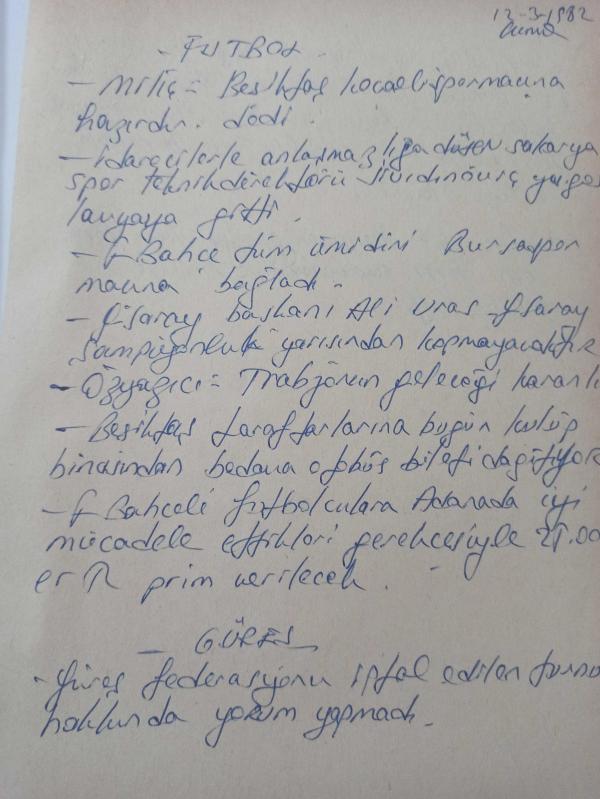 12-3-1982
Cuma
- FUTBOL -
- Miliç = Beşiktaş kocaelispormaçına
hazırdır. dedi.
- idarecilerle anlaşmaz ligadüşen sakarya
spor teknikdirektörü
lavyaya gitti.
- f Bahce tüm ümidini Bursaspor
maçına bağladı.
- G.saray başkanı Ali Uras G.saray
şampiyonluk yarısından kopmayacaktır
- Özyazıcı = Trabzonun geleceği karanlı
- Beşiktaş taraftarlarına bugün kulüp
binasından bedava otobüs bileti dağıtıyor
- f Bahceli futbolculara Adanada iyi
mücadele ettikleri gerekcesiyle 25.00
er TL prim verilecek.
- GÜREŞ
- Güreş federasyonu iptal edilen turnu
hakkında yorum yapmadı.